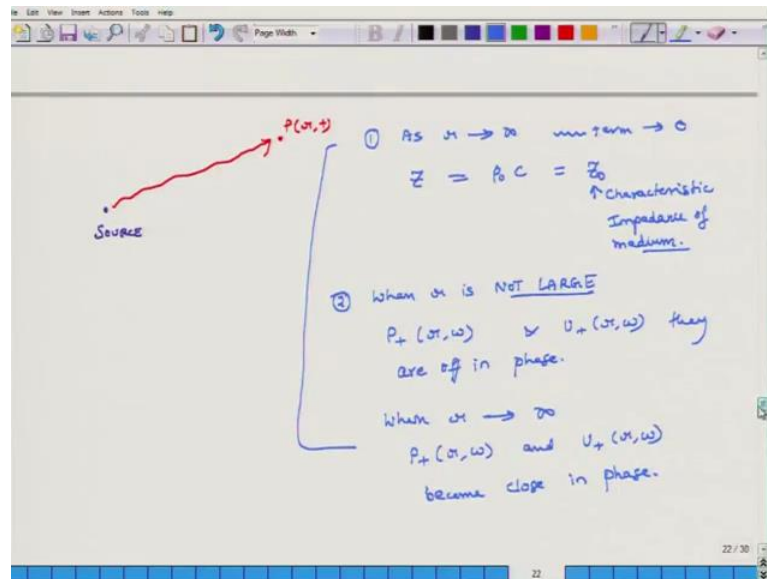 File Edit View Insert Actions Tools Help
Page Width
B I
P(r,t)
SOURCE
① As r → ∞ term → 0
Z = ρ₀ C = Z₀
↑ Characteristic
Impedance of
medium.
② When r is NOT LARGE
P₊ (r,ω) & U₊ (r,ω) they
are off in phase.
When r → ∞
P₊ (r,ω) and U₊ (r,ω)
become close in phase.
22 / 30
22